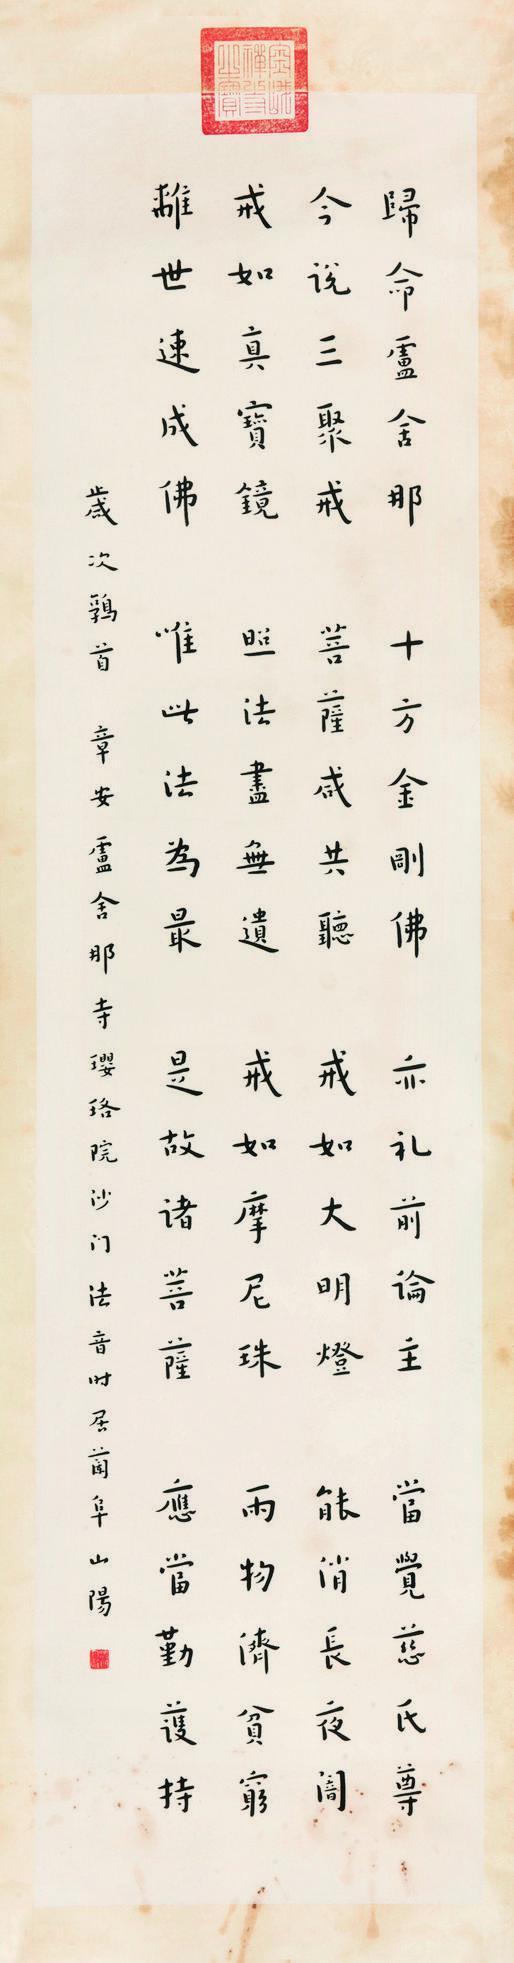 歸命盧舍那 十方金剛佛 亦礼前論主 當覺慈氏尊
今说三聚戒 菩薩咸共聽 戒如大明燈 能消長夜闇
戒如真寶鏡 照法盡無遺 戒如摩尼珠 雨物濟貧窮
離世速成佛 唯此法為最 是故诸菩薩 應當勤護持
歲次鶉首 章安盧舍那寺瓔珞院沙门法音时居蘭阜山陽